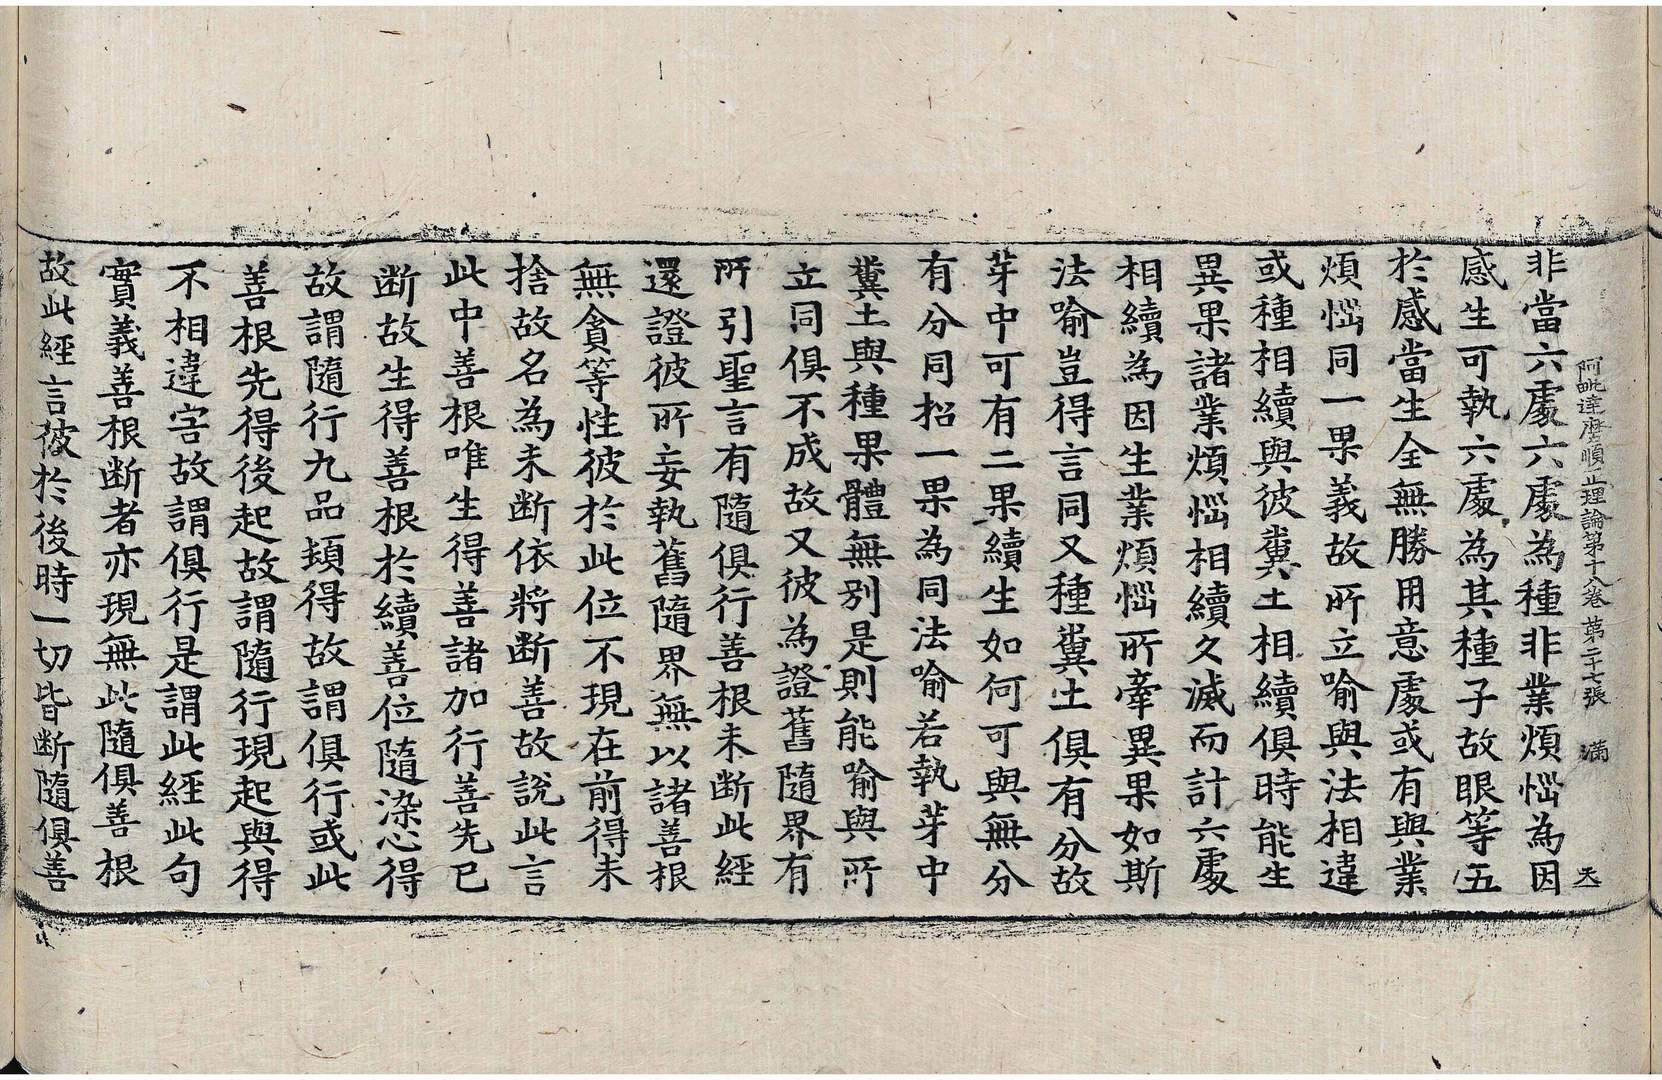 阿毗達磨順正理論第十八卷 第二十七張 滿
非當六處六處為種非業煩惱為因
感生可執六處為其種子故眼等五
於感當生全無勝用意處或有與業
煩惱同一果義故所立喻與法相違
或種相續與彼糞土相續俱時能生
異果諸業煩惱相續久滅而計六處
相續為因生業煩惱所牽異果如斯
法喻豈得言同又種糞土俱有分故
芽中可有二果續生如何可與無分
有分同招一果為同法喻若執芽中
糞土與種果體無別是則能喻與所
立同俱不成故又彼為證舊隨界有
所引聖言有隨俱行善根未斷此經
還證彼所妄執舊隨界無以諸善根
無貪等性彼於此位不現在前得未
捨故名為未斷依將斷善故說此言
此中善根唯生得善諸加行善先已
断故生得善根於續善位隨染心得
故謂隨行九品頓得故謂俱行或此
善根先得後起故謂隨行現起與得
不相違害故謂俱行是謂此經此句
實義善根断者亦現無此隨俱善根
故此經言彼於後時一切皆断隨俱善